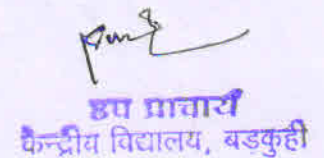 उप प्राचार्य
केन्द्रीय विद्यालय, बडकुही